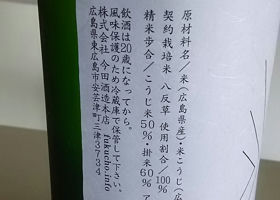 原材料名／米（広島県産）・米こうじ（広
契約栽培米 八反草 使用割合／100％
精米歩合／こうじ米50％・掛米60％ ア
飲酒は20歳になってから。
風味保護のため冷蔵庫で保管して下さい。
株式会社 今田酒造本店 fukucho.info
広島県東広島市安芸津町三津3734